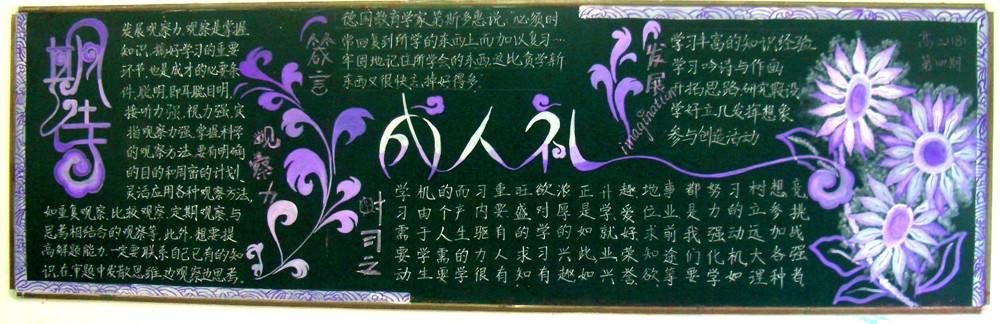 期待
发展观察力,观察是掌握
知识,搞好学习的重要
环节,也是成才的必要条
件,聪明,即耳聪目明,
接听力强,视力强,实
指观察力强,掌握科学
的观察方法,要有明确
的目的和周密的计划
灵活应用各种观察方法,
如重复观察,比较观察,定期观察,与
思考相结合的观察等,此外,想要提
高解题能力,一定要联系自己已有的知
识,在审题中发散思维,边观察边思考.
观察力
箴言
德国教育学家第斯多惠说:"必须时
常回复到所学的东西上而加以复习…
牢固地记住所学会的东西,这比贪学新
东西又很快忘掉好得多."
发展
imagination
学习丰富的知识经验
学习吟诗与作画
开拓思路研究假设
学好立几发挥想象
参与创造活动
高二(18)
第四期
成人礼
时习之
学习需要动
机由于学生
的个人需要
而产生的学
习内驱力很
重要有人有
旺盛的求知
欲时学习有
浓厚的兴趣
正是如此如
计学就业兴
趣爱好荣誉
地位求知欲
事业前途等
都是我们要
努力强化学
习的动机如
树立远大理
想参加各种
竞挑战强者